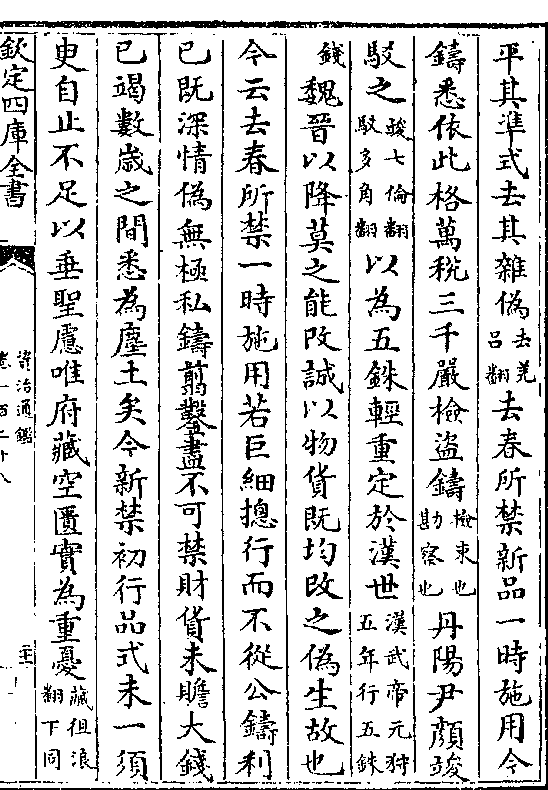 平其準式去其雜偽去羌呂翻去春所禁新品一時施用今
鑄悉依此格萬税三千嚴檢盜鑄檢束也勘察也丹陽尹顔竣
駁之竣七倫翻駁多角翻以為五銖輕重定於漢世漢武帝元狩五年行五銖
錢魏晉以降莫之能改誠以物貨既均改之偽生故也
今云去春所禁一時施用若巨細摠行而不從公鑄利
已既深情偽無極私鑄翦鑿盡不可禁財貨未贍大錢
已竭數嵗之間悉為塵土矣今新禁初行品式未一須
更自止不足以垂聖慮唯府藏空匱實為重憂藏徂浪翻下同
欽定四庫全書
資治通鑑
卷一百二十八